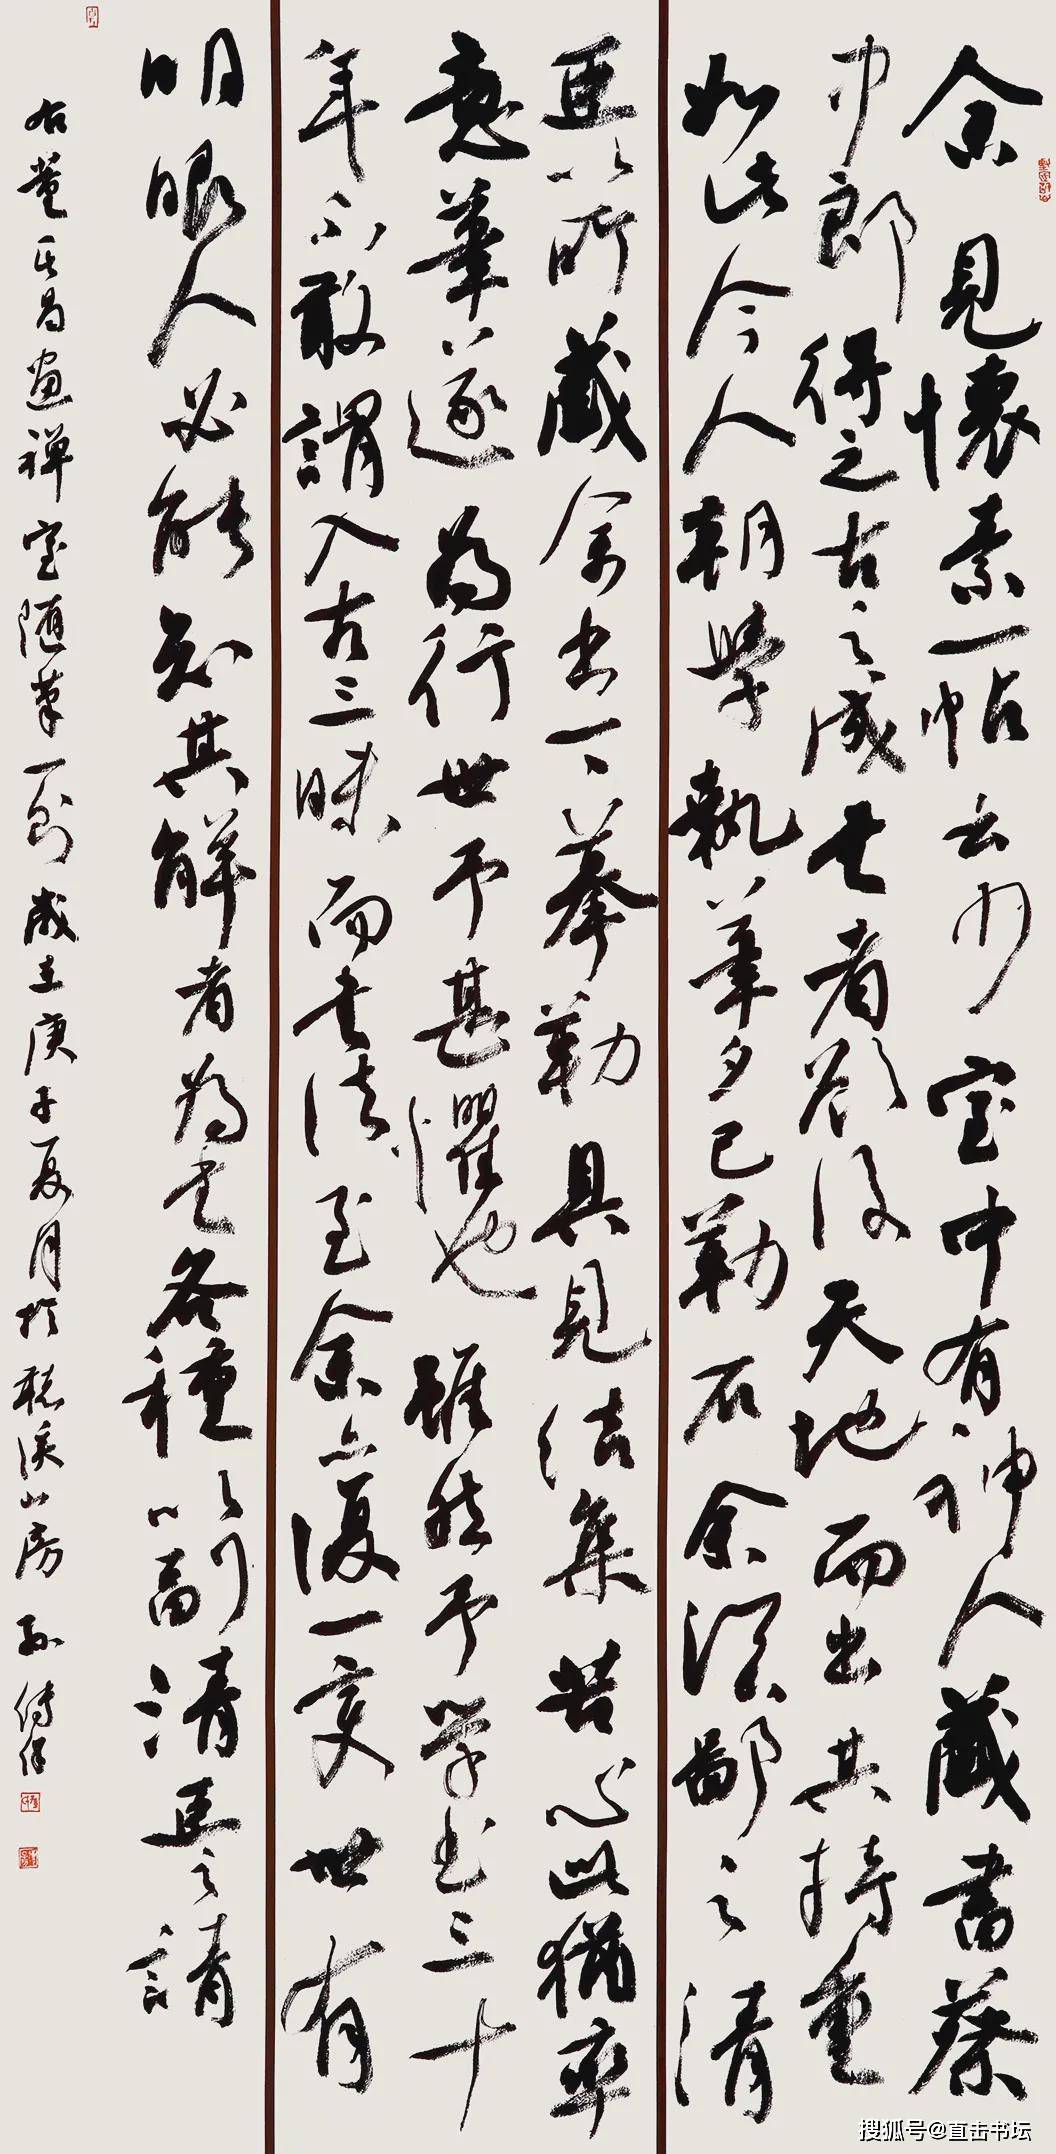 余見懷素一帖云少室中有神人藏書蔡
中郎得之古之成書者欲後天地而出其持重
如此今人朝學執筆夕已勒石余深鄙之清
臣以所藏余書一一摹勒具見結集苦心此猶率
意筆遂為行世予甚懼也雖然予學書三十
年不敢謂入古三昧而書法至余亦復一變世有
明眼人必能知其解者為書各種以副清臣之請
右董其昌畫禪室随筆一則歲在庚子夏月於聽溪山房孫傳
搜狐号@直击书坛